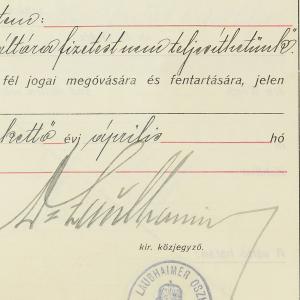 tem:
áltára fizetést nem teljesíthetünk".
fél jogai megóvására és fentartására, jelen
kettő évj április hó
Dr Laubhaimer
kir. közjegyző.
LAUBHAIMER OSZK